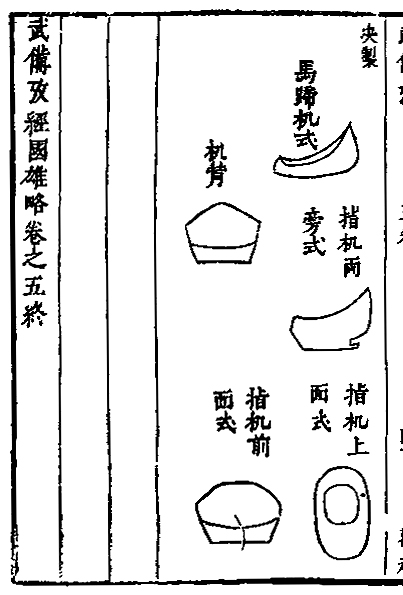 央製
馬蹄机式
指机兩
旁式
指机上
面式
机背
指机前
面式
武備攷經國雄略卷之五終